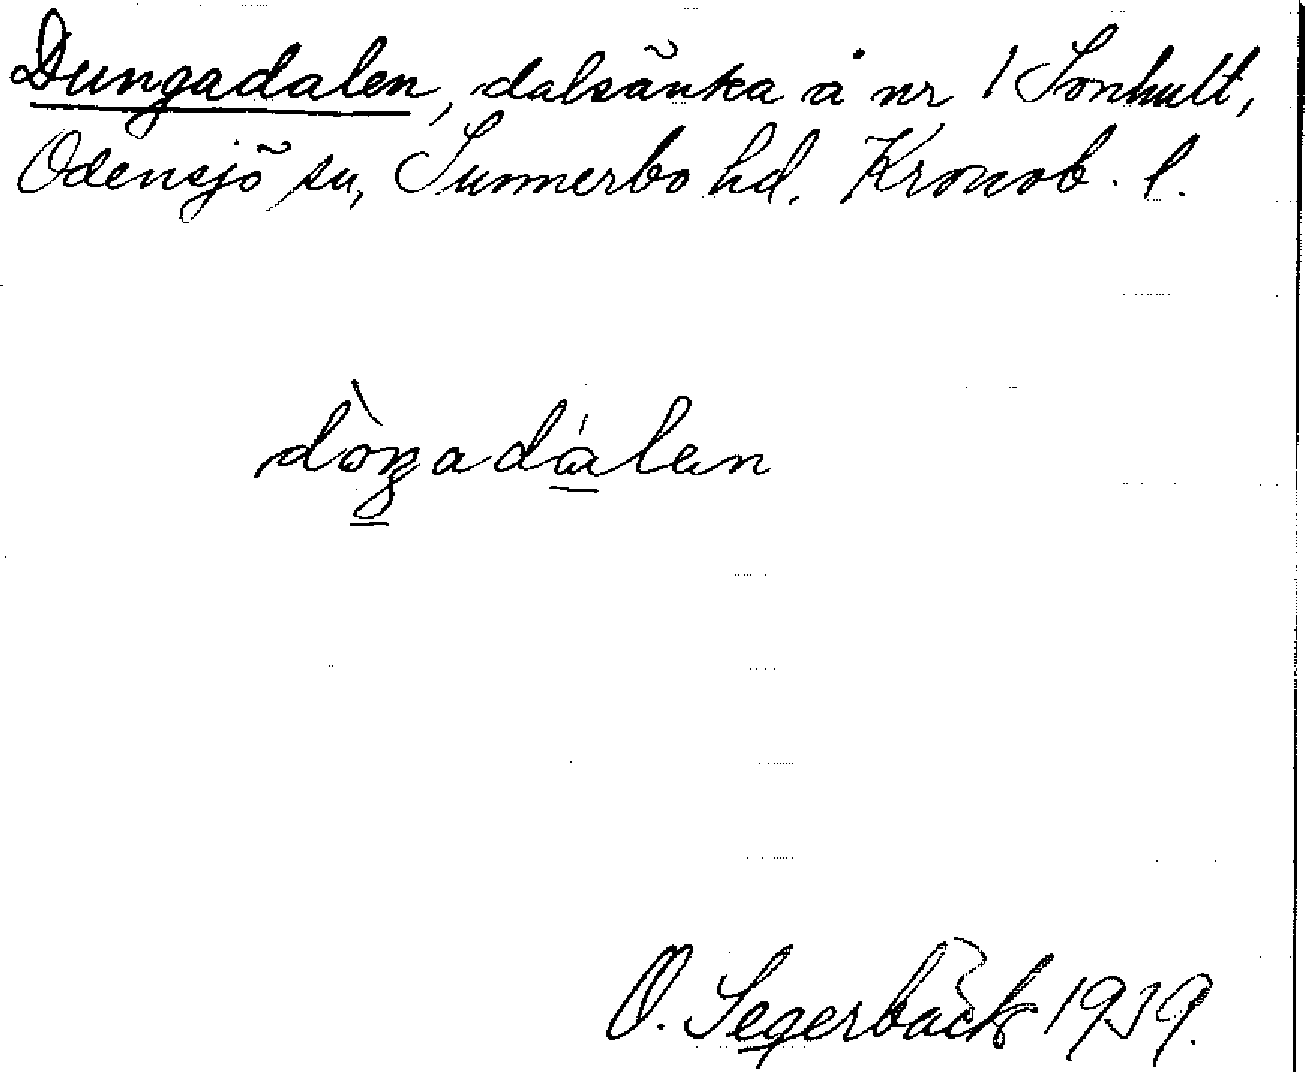 Dungadalen, dalsänka å nr 1 Sonhult,
Odensjö sn, Sunnerbo hd. Kronob. l.
dòŋadálen
O. Segerbäck 1939.